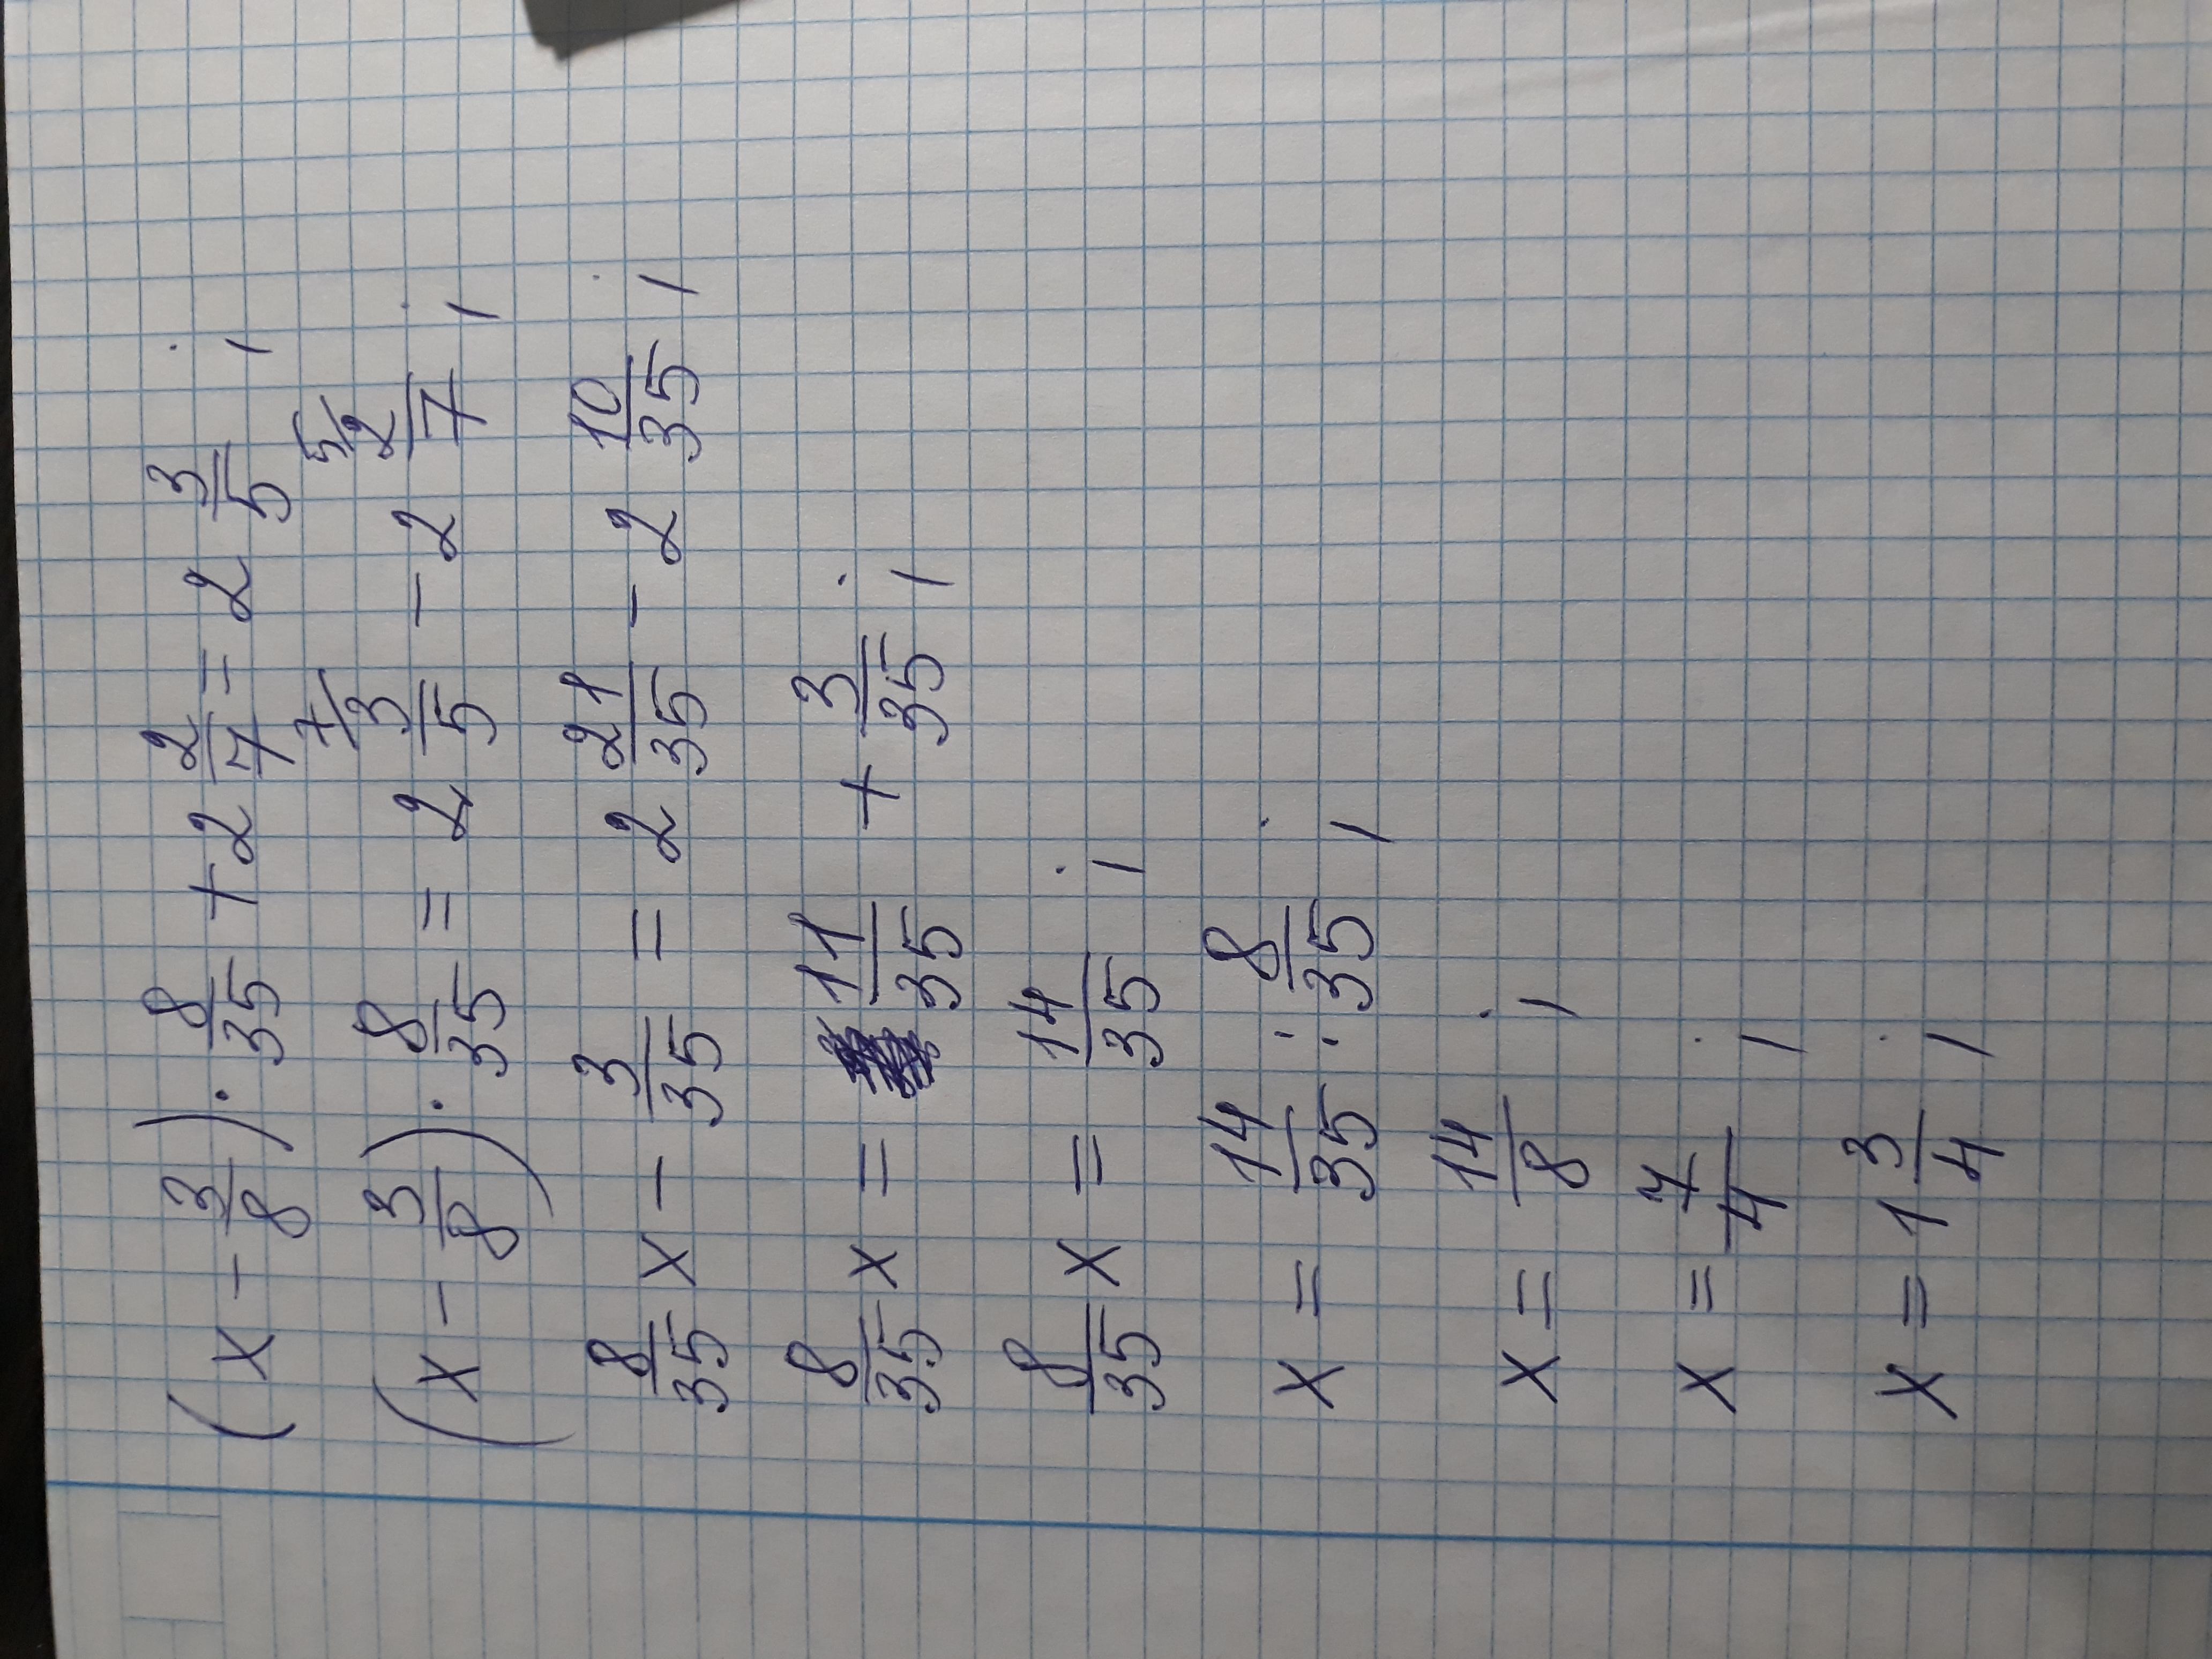 (x - 3/8) · 8/35 + 2 2/7 = 2 3/5 ;
(x - 3/8) · 8/35 = 2 7/ 3/5 - 2 5/ 2/7 ;
8/35 x - 3/35 = 2 21/35 - 2 10/35 ;
8/35 x = 11/35 + 3/35 ;
8/35 x = 14/35 ;
x = 14/35 : 8/35 ;
x = 14/8 ;
x = 7/4 ;
x = 1 3/4 ;